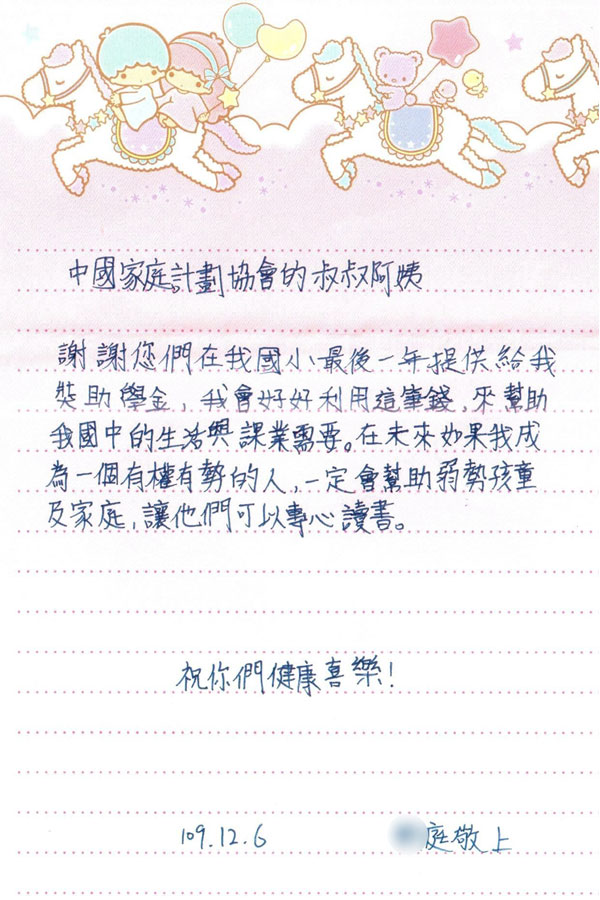 中國家庭計劃協會的叔叔阿姨
謝謝您們在我國小最後一年提供給我
奘助學金，我會好好利用這筆錢，來幫助
我國中的生活與課業需要。在未來如果我成
為一個有權有勢的人，一定會幫助弱勢孩童
及家庭，讓他們可以專心讀書。
祝你們健康喜樂！
109.12.6
庭敬上